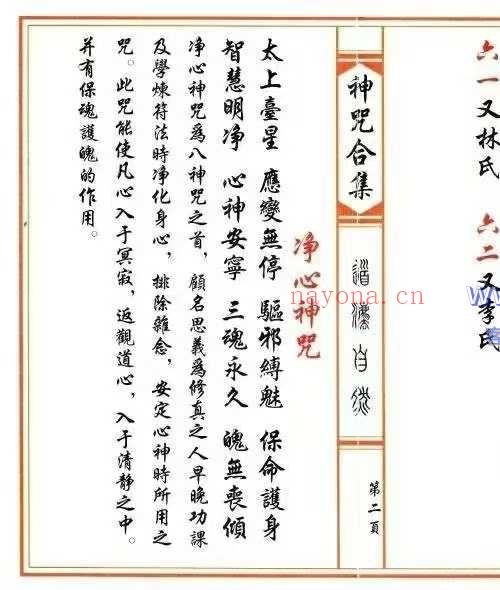 六一又林氏　六二又李氏
神咒合集
道濂自然
第二頁
净心神咒
太上臺星　應變無停　驅邪縛魅　保命護身
智慧明净　心神安寧　三魂永久　魄無喪傾
净心神咒爲八神咒之首，顧名思義爲修真之人早晚功課
及學煉符法時净化身心，排除雜念，安定心神時所用之
咒。此咒能使凡心入于冥寂，返觀道心，入于清静之中。
并有保魂護魄的作用。
nayona.cn